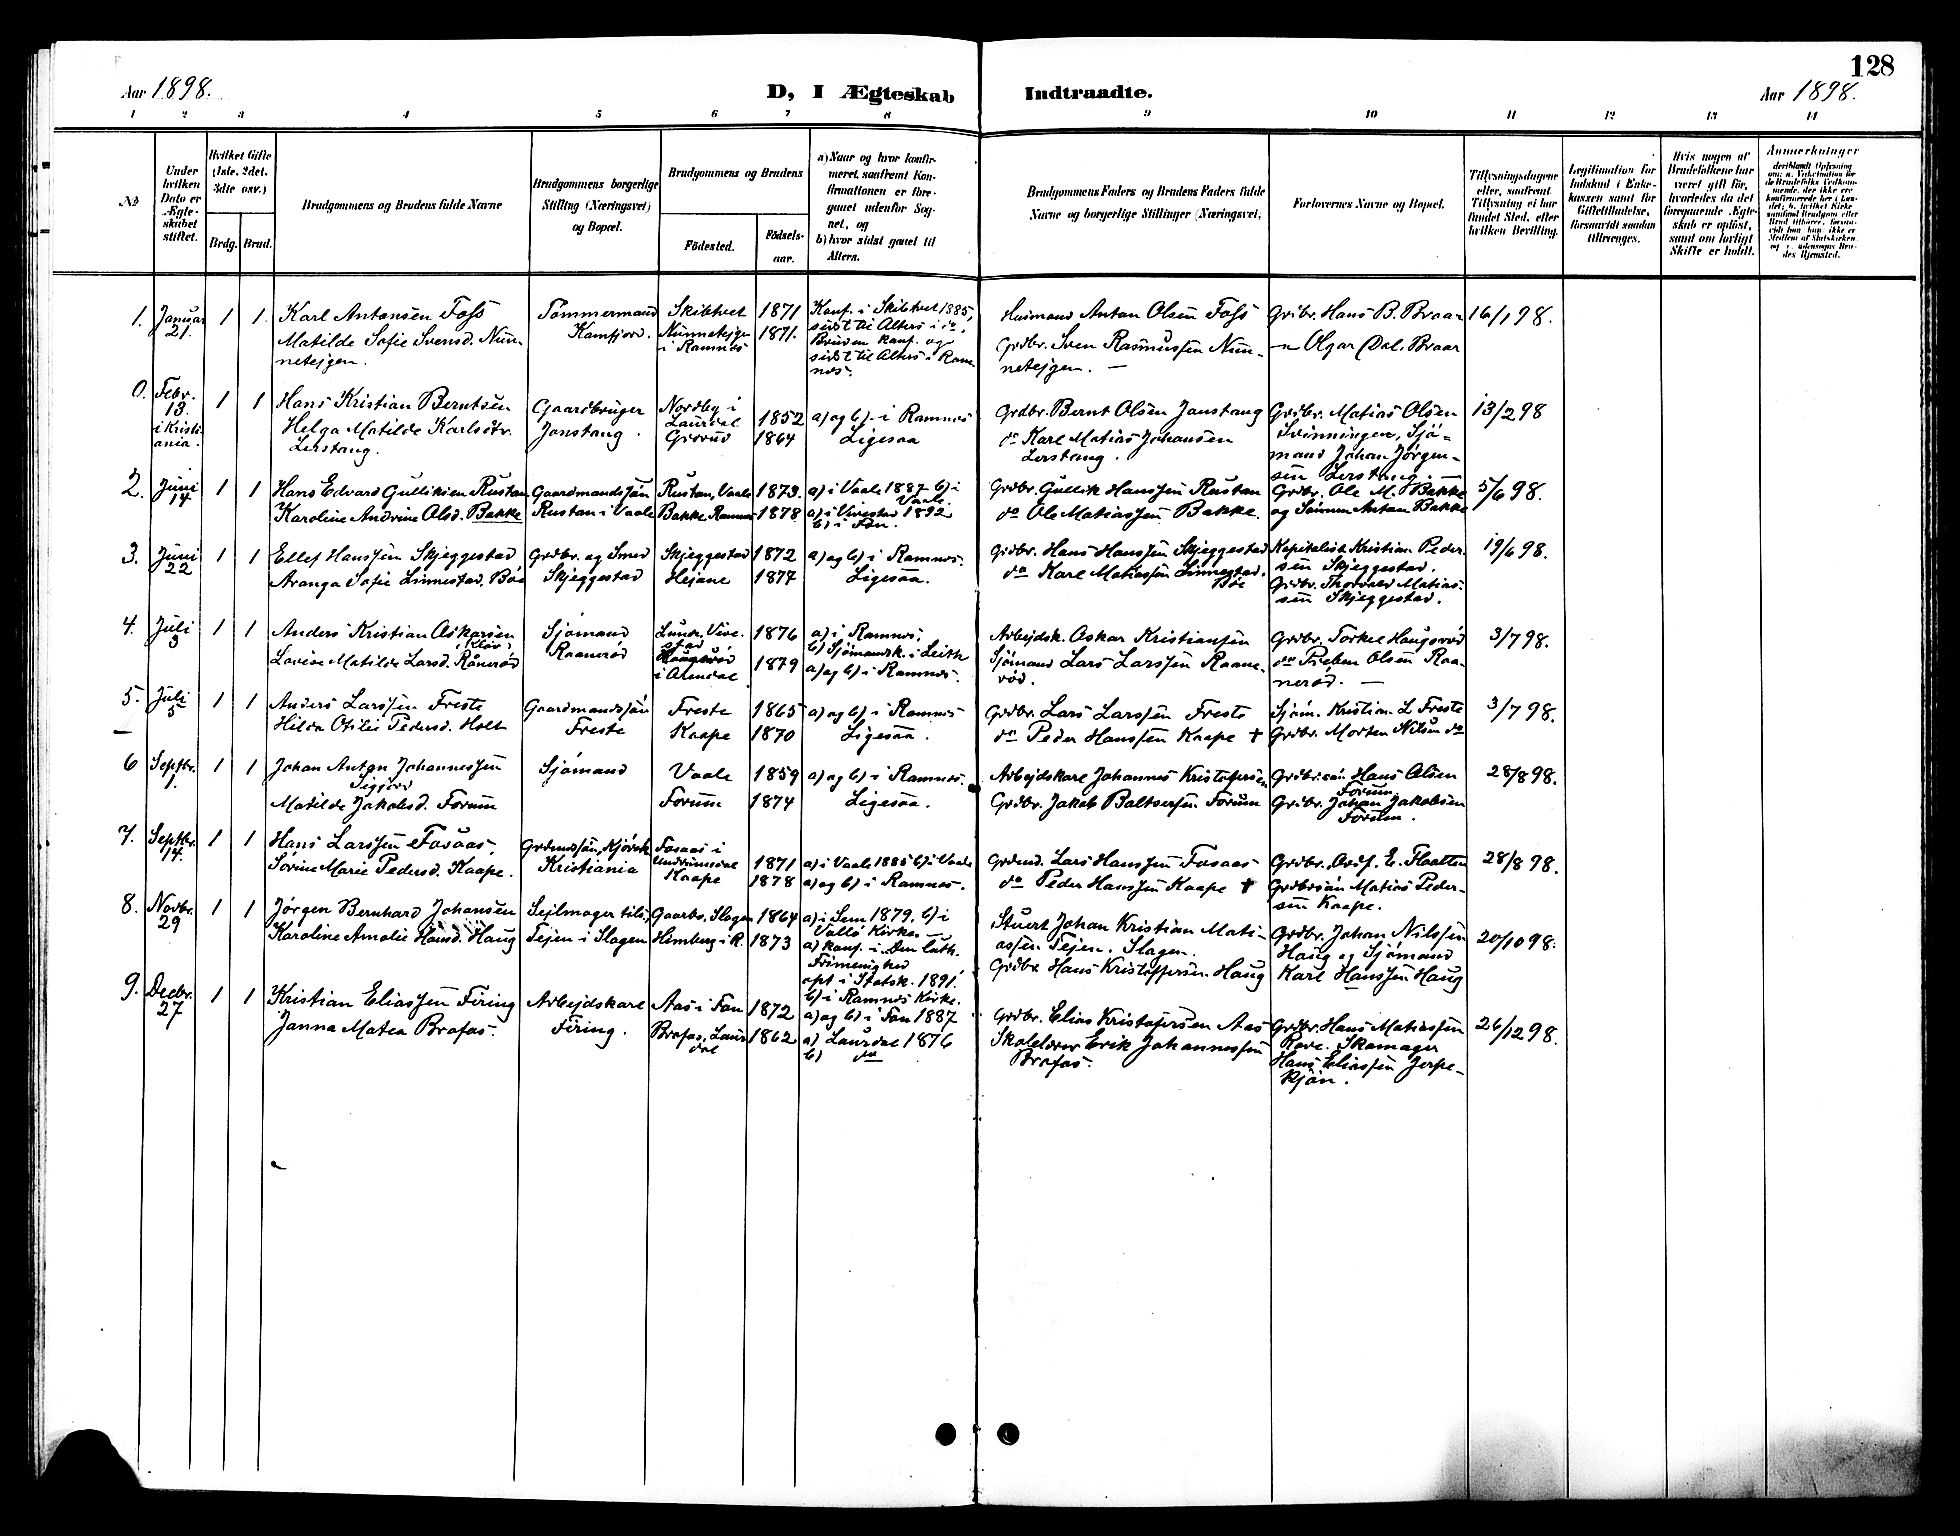 128
Aar 1898.
D, I Ægteskab Indtraadte.
Aar 1898.
1 2 3 4 5 6 7 8 9 10 11 12 13 14
No
Under hvilken Dato er Ægteskabet stiftet.
Hvilket Gifte (1ste, 2det, 3die osv.)
Brdg. Brud.
Brudgommens og Brudens fulde Navne
Brudgommens borgerlige Stilling (Næringsvei) og Bopæl.
Brudgommens og Brudens
Fødested.
Fødselsaar.
a) Naar og hvor konfirmeret, saafremt Konfirmationen er foregaaet udenfor Sognet, og
b) hvor sidst gaaet til Alters.
Brudgommens Faders og Brudens Faders fulde Navne og borgerlige Stillinger (Næringsvei,
Forlovernes Navne og Bopæl.
Tillysningsdagene eller, saafremt Tillysning ei har fundet Sted, efter hvilken Bevilling.
Legitimation for Indskud i Enkekassen samt for Giftetilladelse, forsaavidt saadan tiltrænges.
Hvis nogen af Brudefolkene har været gift før, hvorledes da det foregaaende Ægteskab er opløst, samt om lovligt Skifte er holdt.
Anmerkninger
1. Januar 21. 1 1.
Karl Antonsen Foss
Matilde Sofie Svensd. Nunnetejgen.
Tømmermand Kamfjord.
Skibtvet 1871
Nunnetejgen i Ramnes 1871.
Konf. i Skibtvet 1885, sidst til Alters i do. Bruden konf. og sidst til Alters i Ramnes.
Husmand Anton Olsen Foss
Grdbr. Sven Rasmussen Nunnetejgen. —
Grdbr. Hans B. Braar
— Olgar Braar
16/1 98.
0. Febr. 13. i Kristiania. 1 1
Hans Kristian Berntsen
Helga Matilde Karlsdtr. Lerstang.
Gaardbruger Janstang.
Nordby i Laurdal 1852
Grorud 1864
a) og b) i Ramnes
Ligesaa
Grdbr. Bernt Olsen Janstang
do Karl Matias Johansen Lerstang.
Grdbr. Matias Olsen Svinningen, Sjømand Johan Jørgensen Lerstang. —
13/2 98
2. Juni 14 1 1
Hans Edvard Gulliksen Rustan
Karoline Andrine Olsd. Bakke
Gaardmandssøn Rustan i Vaale
Rustan, Vaale 1873.
Bakke, Ramnes 1878
a) i Vaale 1887 b) i Vaale.
a) i Vivestad 1892 b) i Fon.
Grdbr. Gullik Hanssen Rustan
do Ole Matiassen Bakke.
Grdbr. Ole M. Bakke og Anton Bakke
5/6 98.
3. Juni 22 1 1
Ellef Hanssen Skjeggestad
Aranga Sofie Linnestad, Bøe
Grdbr. og Smed Skjeggestad
Skjeggestad 1872
Hejane 1874
a) og b) i Ramnes.
Ligesaa.
Grdbr. Hans Hanssen Skjeggestad
do Karl Matiassen Linnestad, Bøe
Kapitalist Kristian Pedersen Skjeggestad.
Grdbr. Thorvald Matiassen Skjeggestad.
19/6 98.
4. Juli 3 1 1
Anders Kristian Oskarsen
Lovise Matilde Larsd. Rånerød
Sjømand Raanerød
Lunde, Vivestad 1876
Haugsrød i Arendal 1879
a) i Ramnes.
b) Sjømandsk. i Leith
a) og b) i Ramnes.
Arbejdsk. Oskar Kristiansen
Sjømand Lars Larssen Raanerød.
Grdbr. Torkel Haugsrød
do Preben Olsen Raanerød. —
3/7 98.
5. Juli 5 1 1
Anders Larssen Freste
Hilda Otilie Pedersd. Holt
Gaardmandssøn Freste
Freste 1865
Kaape 1870
a) og b) i Ramnes
Ligesaa.
Grdbr. Lars Larssen Freste
do Peder Hanssen Kaape +
Sjøm. Kristian L. Freste
Grdbr. Morten Nilsen do
3/7 98.
6 Septbr. 1. 1 1
Johan Anton Johannessen
Matilde Jakobsd. Forum
Sjømand
Vaale 1859
Forum 1874
a) og b) i Ramnes.
Ligesaa.
Arbejdskarl Johannes Kristofersen
Grdbr. Jakob Baltsersen Forum
Grdbrsøn Hans Olsen Forum
Grdbr. Johan Jakobsen Forum.
28/8 98.
7. Septbr. 14. 1 1
Hans Larssen Fosaas.
Sørine Marie Pedersd. Kaape.
Kristiania
Fosaas i Undrumsdal 1871
Kaape 1878
a) i Vaale 1885 b) i Vaale
a) og b) i Ramnes.
Grdmd. Lars Hanssen Fosaas
do Peder Hanssen Kaape +
Grdbr. E. Flaatten
Grdbrsøn Matias Pedersen Kaape.
28/8 98.
8. Novbr. 29 1 1
Jørgen Bernhard Johansen
Karoline Amalie Hansd. Haug
Sejlmager Tejen i Slagen
Slagen 1864
Himberg i R. 1873
a) i Sem 1879. b) i Vallø Kirke. —
a) konf. i Den luth. Frimenighed opt. i Statsk. 1891. b) i Ramnes Kirke.
Stuert Johan Kristian Matiassen Tejen. Slagen.
Grdbr. Hans Kristoffersen Haug
Grdbr. Johan Nilssen Haug og Sjømand Karl Hanssen Haug
20/10 98.
9. Decbr. 27 1 1
Kristian Eliassen Firing
Janna Matea Brafos.
Arbejdskarl Firing.
Aas i Fon 1872
Brafos, Laurdal 1862
a) og b) i Fon 1887
a) Laurdal 1876
b) do
Grdbr. Elias Kristofersen Aas
Skolelærer Erik Johannessen Brafos.
Grdbr. Hans Matiassen Rove. Skomager Hans Eliassen Jerpekjøn.
26/12 98.